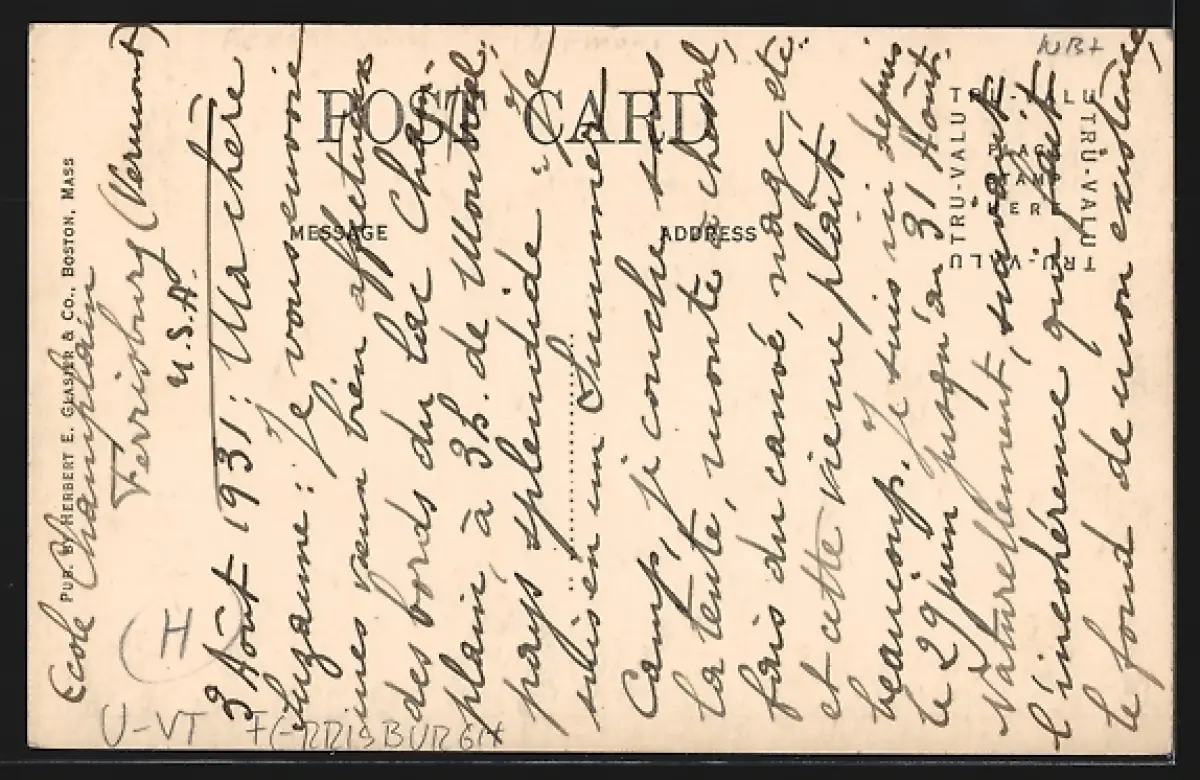 POST CARD
MESSAGE
ADDRESS
TRU-VALU
TRU-VALU
TRU-VALU
TRU-VALU
PLACE
STAMP
HERE
PUB. BY HERBERT E. GLASIER & CO., BOSTON, MASS
Ecole Champlain
Ferrisburg (Vermont)
U.S.A.
3 Août 1931: Ma chère
Suzanne: Je vous envoie
mes vœux bien affectueux
des bords du lac Cham-
plain, à 3h. de Montréal,
pays splendide. Je
suis en un Summer
Camp, je couche sous
la tente, monte à cheval,
fais du canoë, nage, etc.
et cette vie me plaît
beaucoup. Je suis ici depuis
le 29 juin jusqu'au 31 Août.
Naturellement, suivant
l'incohérence qui fait
le fond de mon existence,
H
U-VT FERRISBURGH